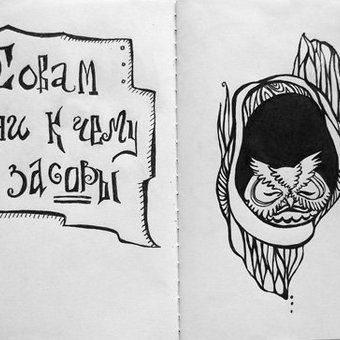 Совам
ни к чему
засовы